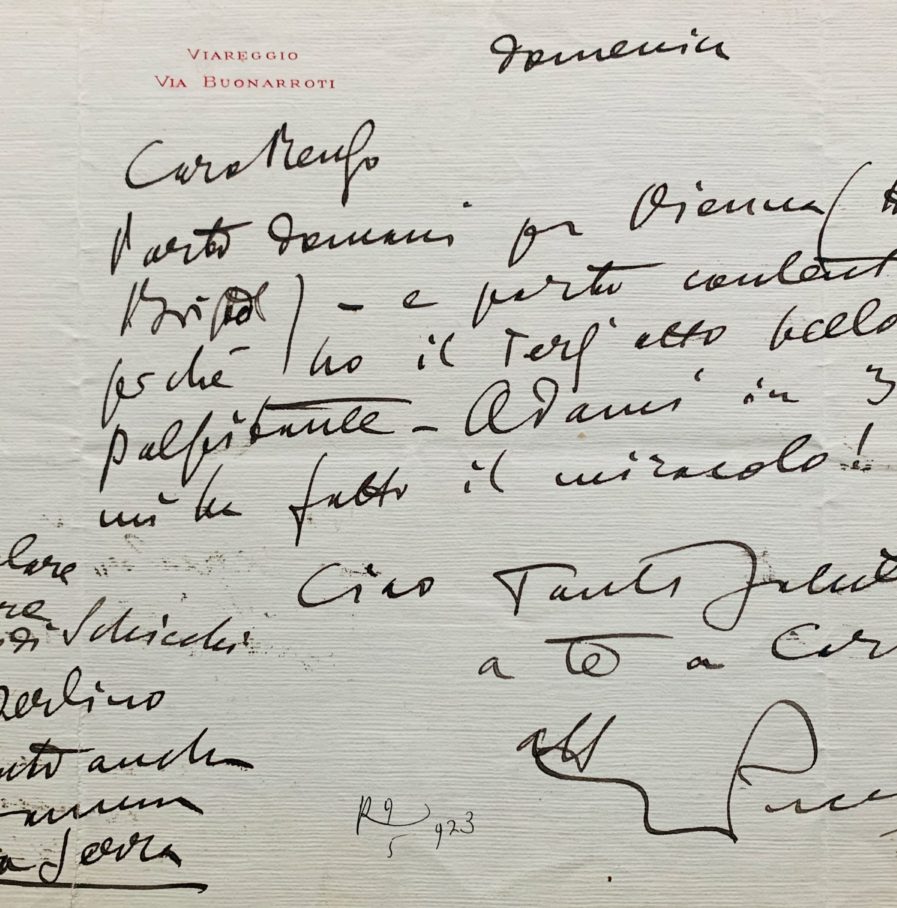 VIAREGGIO
VIA BUONARROTI
Domenica
Caro
Parto domani per Vienna (
Bristol) - e parto content
perché ho il Terz' atto bello
palpitante - Adami in 3
mi ha fatto il miracolo!
Ciao Tanti saluti
a te a Car
aff Pucc
lare
re
di Schicchi
Berlino
anche
Serra
R 9/5 923